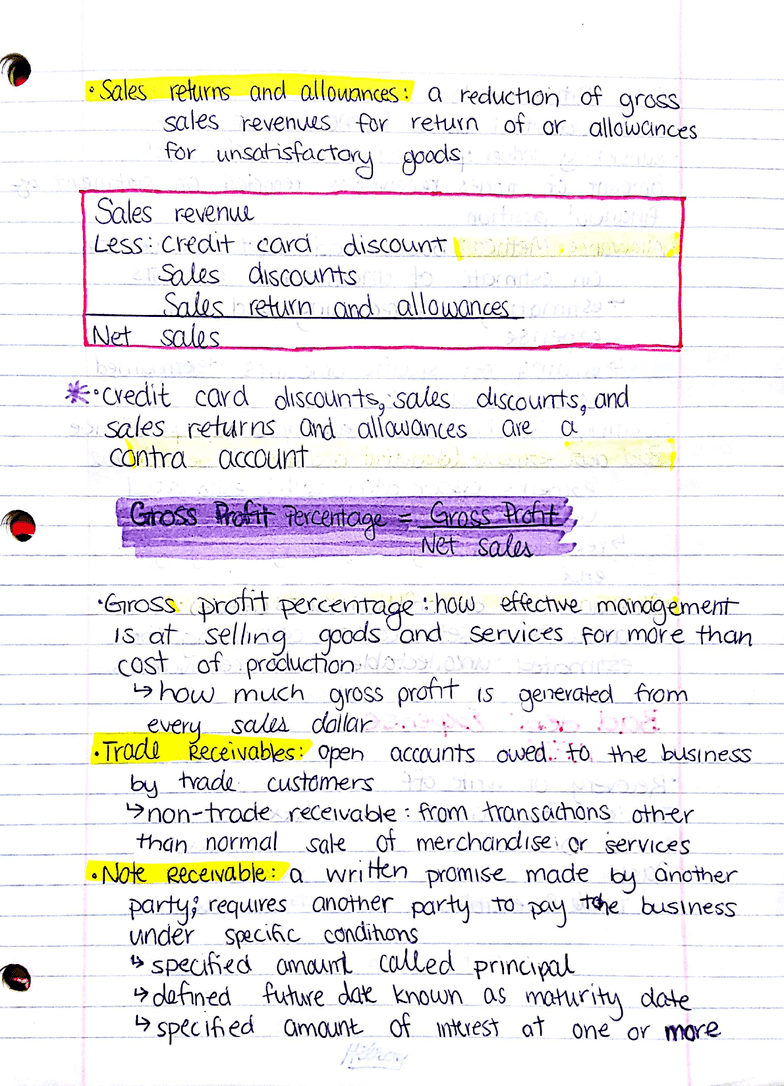 • Sales returns and allowances: a reduction of gross
sales revenues for return of or allowances
for unsatisfactory goods
Sales revenue
Less: credit card discount
Sales discounts
Sales return and allowances
Net sales
* • credit card discounts, sales discounts, and
sales returns and allowances are a
contra account
Gross Profit Percentage = Gross Profit
Net sales
• Gross profit percentage: how effective management
is at selling goods and services for more than
cost of production
↳ how much gross profit is generated from
every sales dollar
• Trade Receivables: open accounts owed to the business
by trade customers
↳ non-trade receivable: from transactions other
than normal sale of merchandise or services
• Note Receivable: a written promise made by another
party; requires another party to pay the business
under specific conditions
↳ specified amount called principal
↳ defined future date known as maturity date
↳ specified amount of interest at one or more
Hilroy